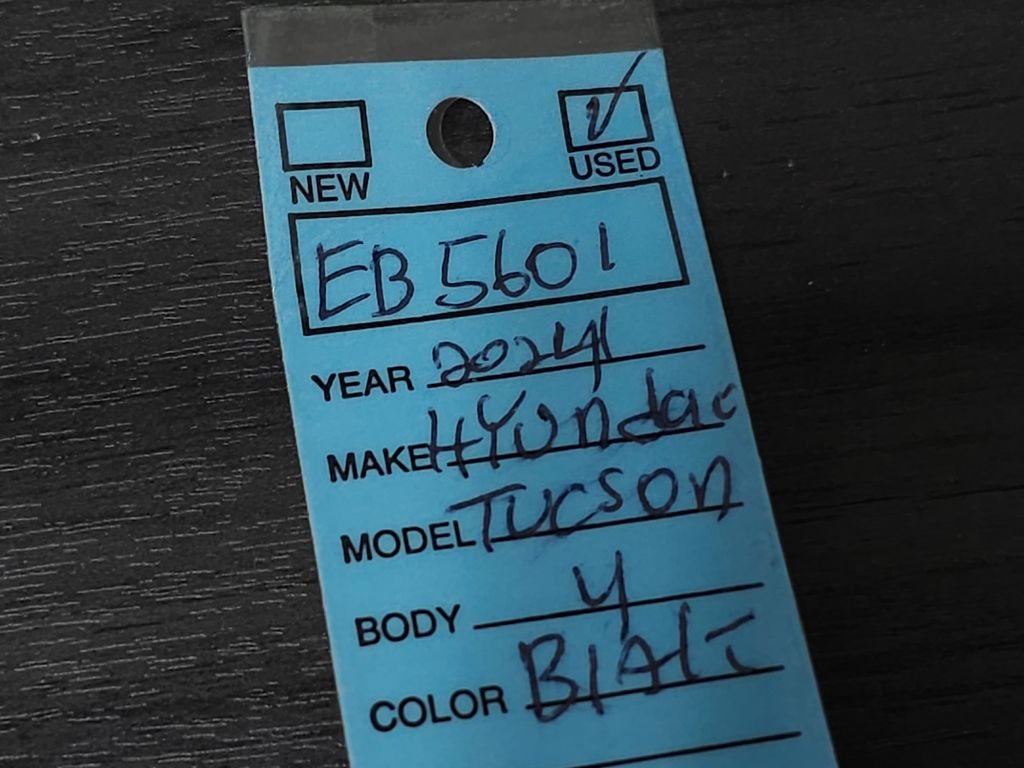 NEW USED
EB 5601
YEAR 2024
MAKE Hyundai
MODEL Tucson
BODY 4
COLOR